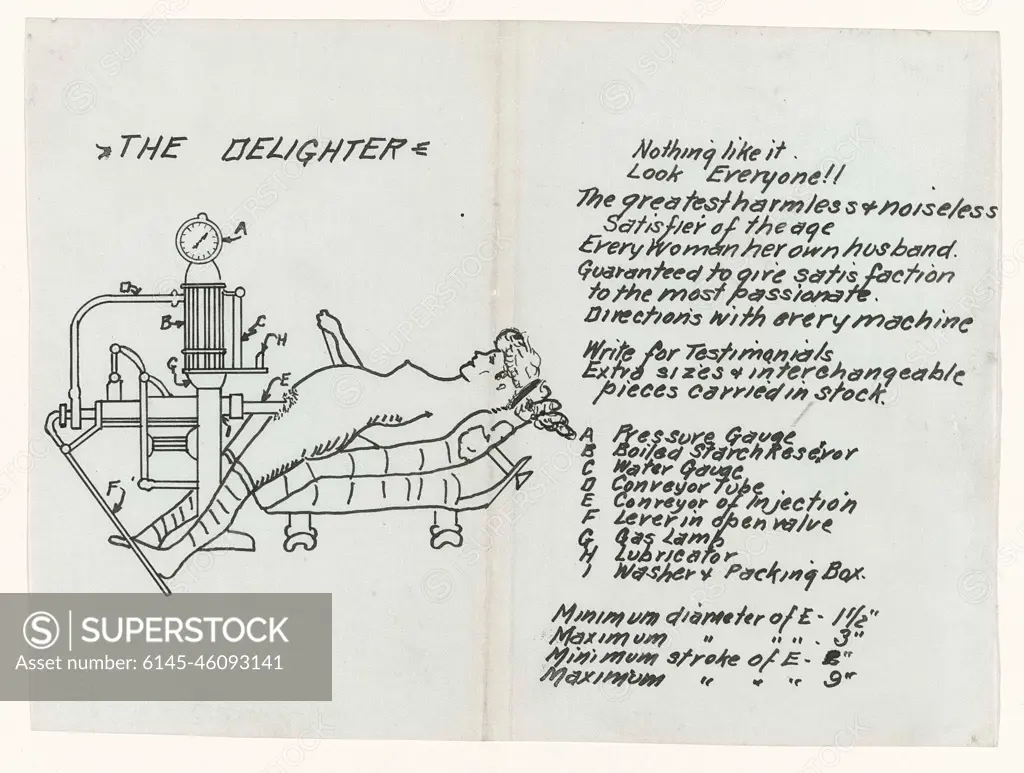 THE DELIGHTER
A
D
B
C
H
G
E
F
Nothing like it.
Look Everyone!!
The greatest harmless & noiseless
Satisfier of the age
Every Woman her own husband.
Guaranteed to give satisfaction
to the most passionate.
Directions with every machine
Write for Testimonials
Extra sizes & interchangeable
pieces carried in stock.
A Pressure Gauge
B Boiled Starch Reservor
C Water Gauge
D Conveyor Tube
E Conveyor of Injection
F Lever in open valve
G Gas Lamp
H Lubricator
I Washer & Packing Box.
Minimum diameter of E - 1 1/2"
Maximum " " " . 3"
Minimum stroke of E - "
Maximum " " " 9"
SUPERSTOCK
Asset number: 6145-46093141